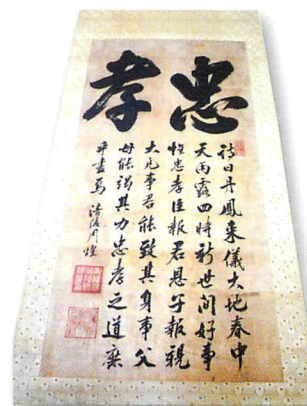 忠孝
詩曰丹鳳來儀大地春中
天雨露四時新世間好事
惟忠孝臣報君恩子報親
大凡事君能致其身事父
母能竭其力忠孝之道庶
乎盡焉 涪陵周煌